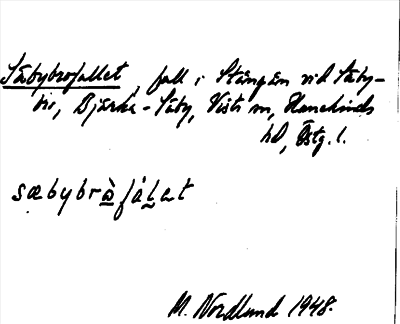 Säbybrofallet, fall i Stångån vid Säby-
bro, Bjärka-Säby, Vists sn, Hanekinds
hd, Östg. l.
sæbybròfálat
M. Nordlund 1948.